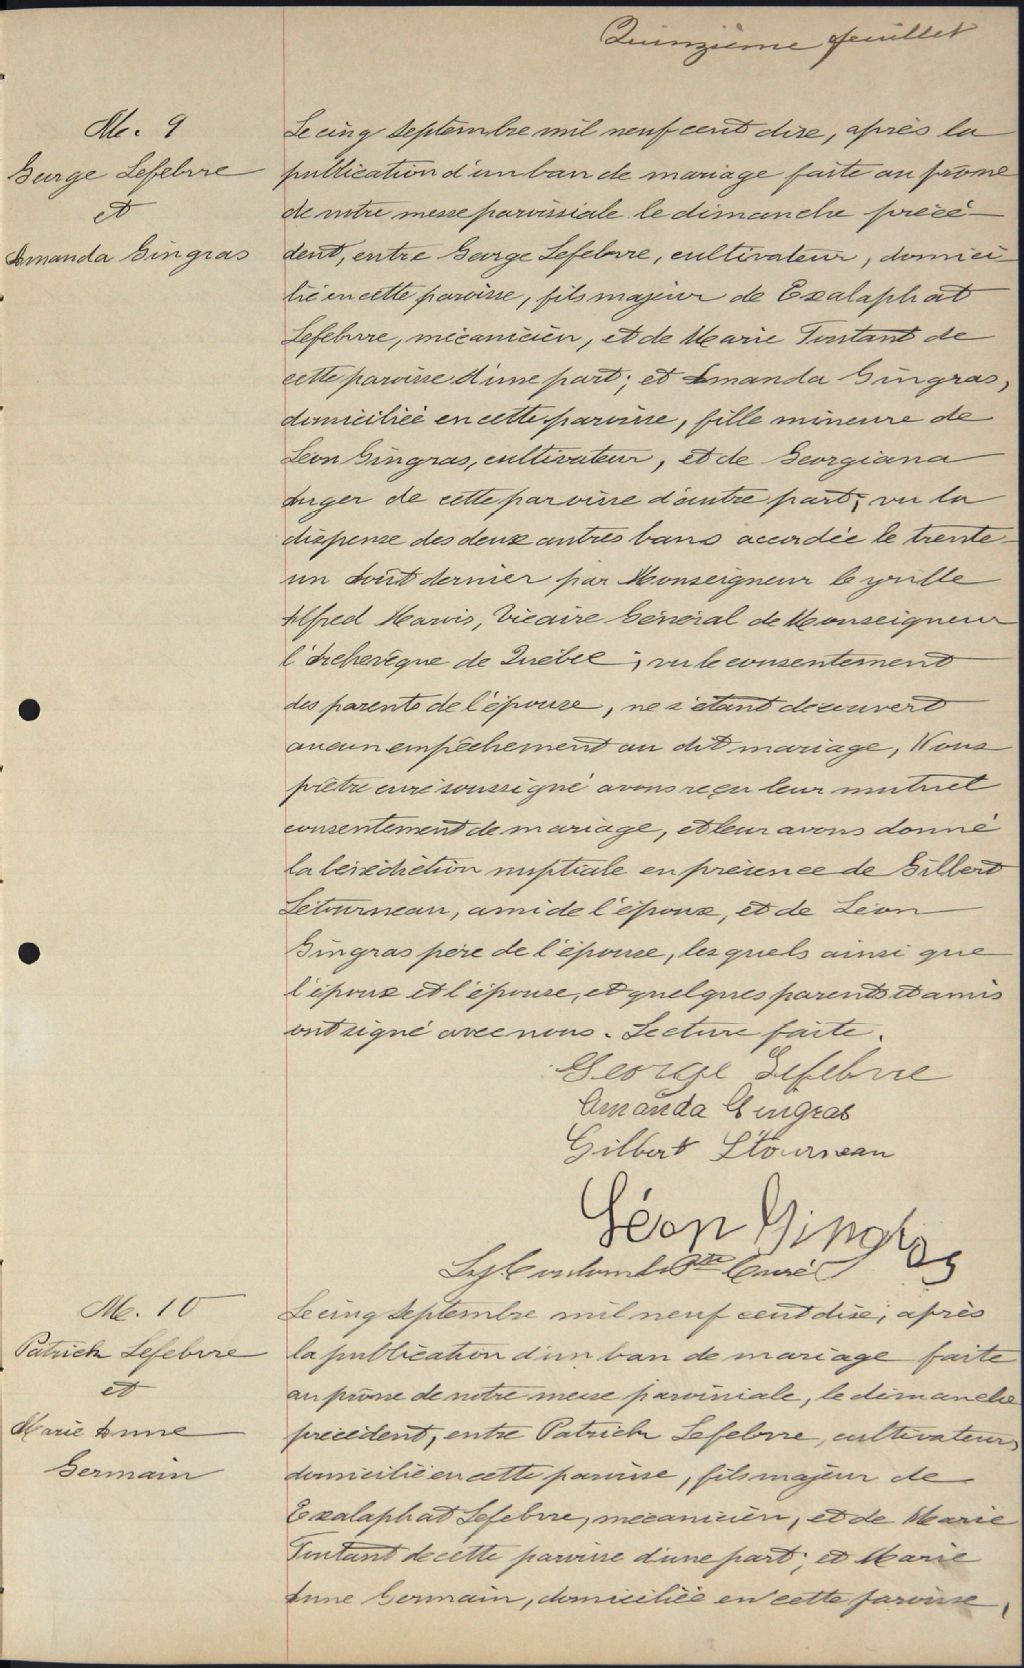 Quinzième feuillet
M. 9
George Lefebvre
et
Amanda Gingras
Le cinq septembre mil neuf cent dix, après la
publication d'un ban de mariage faite au prône
de notre messe paroissiale le dimanche précé-
dent, entre George Lefebvre, cultivateur, domici-
lié en cette paroisse, fils majeur de Exalaphat
Lefebvre, mécanicien, et de Marie Toutant de
cette paroisse d'une part; et Amanda Gingras,
domiciliée en cette paroisse, fille mineure de
Léon Gingras, cultivateur, et de Georgiana
Auger de cette paroisse d'autre part; vu la
dispense des deux autres bans accordée le trente-
un Août dernier par Monseigneur Cyrille
Alfred Marois, Vicaire Général de Monseigneur
l'Archevêque de Québec; vu le consentement
des parents de l'épouse, ne s'étant découvert
aucun empêchement au dit mariage, Nous
prêtre curé soussigné avons reçu leur mutuel
consentement de mariage, et leur avons donné
la bénédiction nuptiale en présence de Gilbert
Létourneau, ami de l'époux, et de Léon
Gingras père de l'épouse, lesquels ainsi que
l'époux et l'épouse, et quelques parents et amis
ont signé avec nous. Lecture faite.
George Lefebvre
Amanda Gingras
Gilbert Ltourneau
Léon Gingras
Coulombe Ptre Curé
M. 10
Patrick Lefebvre
et
Marie Anne
Germain
Le cinq septembre mil neuf cent dix; après
la publication d'un ban de mariage faite
au prône de notre messe paroissiale, le dimanche
précédent, entre Patrick Lefebvre, cultivateur,
domicilié en cette paroisse, fils majeur de
Exalaphat Lefebvre, mécanicien, et de Marie
Toutant de cette paroisse d'une part; et Marie
Anne Germain, domiciliée en cette paroisse,